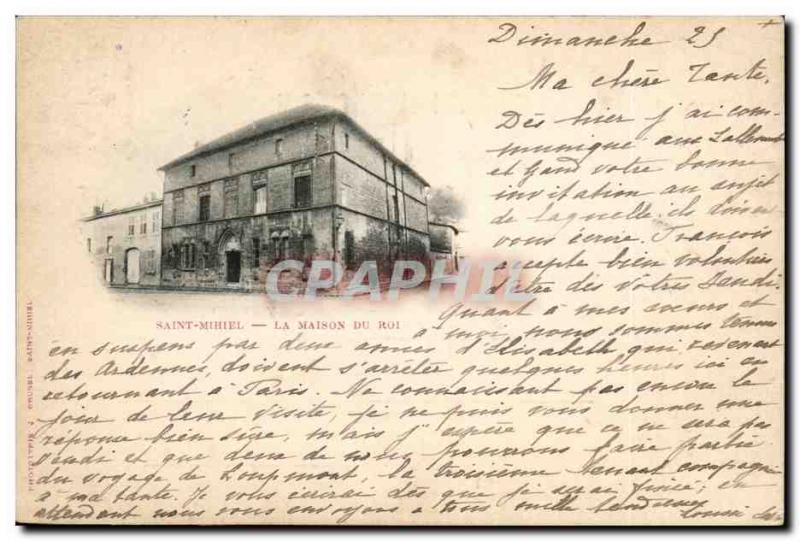 Dimanche 25
Ma chère Tante,
Dès hier j'ai com-
muniqué aux Lallemant
et Gand votre bonne
invitation au sujet
de laquelle ils doivent
vous écrire. François
accepte bien volontiers
d'être des vôtres Lundi.
Quant à mes sœurs et
à moi nous sommes tenues
en suspens par deux amies d'Elisabeth qui, revenant
des Ardennes, doivent s'arrêter quelques heures ici en
retournant à Paris. Ne connaissant pas encore le
jour de leur visite, je ne puis vous donner une
réponse bien sûre, mais j'espère que ce ne sera pas
lundi et que deux de nous pourrons faire partie
du voyage de Loupmont, la troisième tenant compagnie
à ma tante. Je vous écrirai dès que je serai fixée, en
attendant nous vous envoyons à tous mille tendresses
SAINT-MIHIEL — LA MAISON DU ROI
CPARPHIL